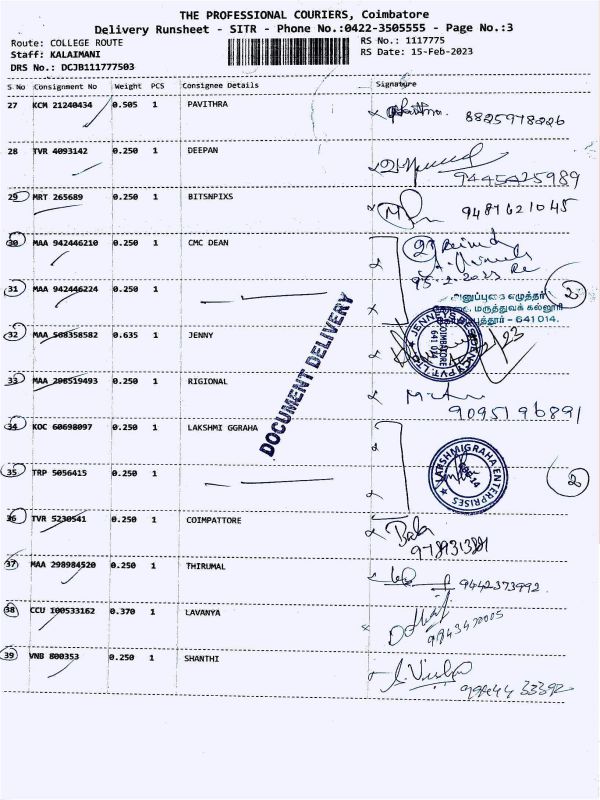 THE PROFESSIONAL COURIERS, Coimbatore
Delivery Runsheet - SITR - Phone No.:0422-3505555 - Page No.:3
Route: COLLEGE ROUTE
RS No.: 1117775
Staff: KALAIMANI
RS Date: 15-Feb-2023
DRS No.: DCJB111777503
S No Consignment No Weight PCS Consignee Details Signature
27 KCM 21240434 0.505 1 PAVITHRA
8825978226
28 TVR 4093142 0.250 1 DEEPAN
9445425989
29 MRT 265689 0.250 1 BITSNPIXS
9487621045
30 MAA 942446210 0.250 1 CMC DEAN
31 MAA 942446224 0.250 1
அனுப்புகை எழுத்தர்
மருத்துவக் கல்லூரி
641 014.
32 MAA 568358582 0.635 1 JENNY
JENNEYS RESIDENCY PVT. LTD.
COIMBATORE
641 014
DOCUMENT DELIVERY
33 MAA 298519493 0.250 1 RIGIONAL
9095196891
34 KOC 60698097 0.250 1 LAKSHMI GGRAHA
35 TRP 5056415 0.250 1
LAKSHMIGRAHA ENTERPRISES
36 TVR 5230541 0.250 1 COIMPATTORE
Bala
37 MAA 298984520 0.250 1 THIRUMAL
9442373992
38 CCU 100533162 0.370 1 LAVANYA
9843470005
39 VNB 800353 0.250 1 SHANTHI